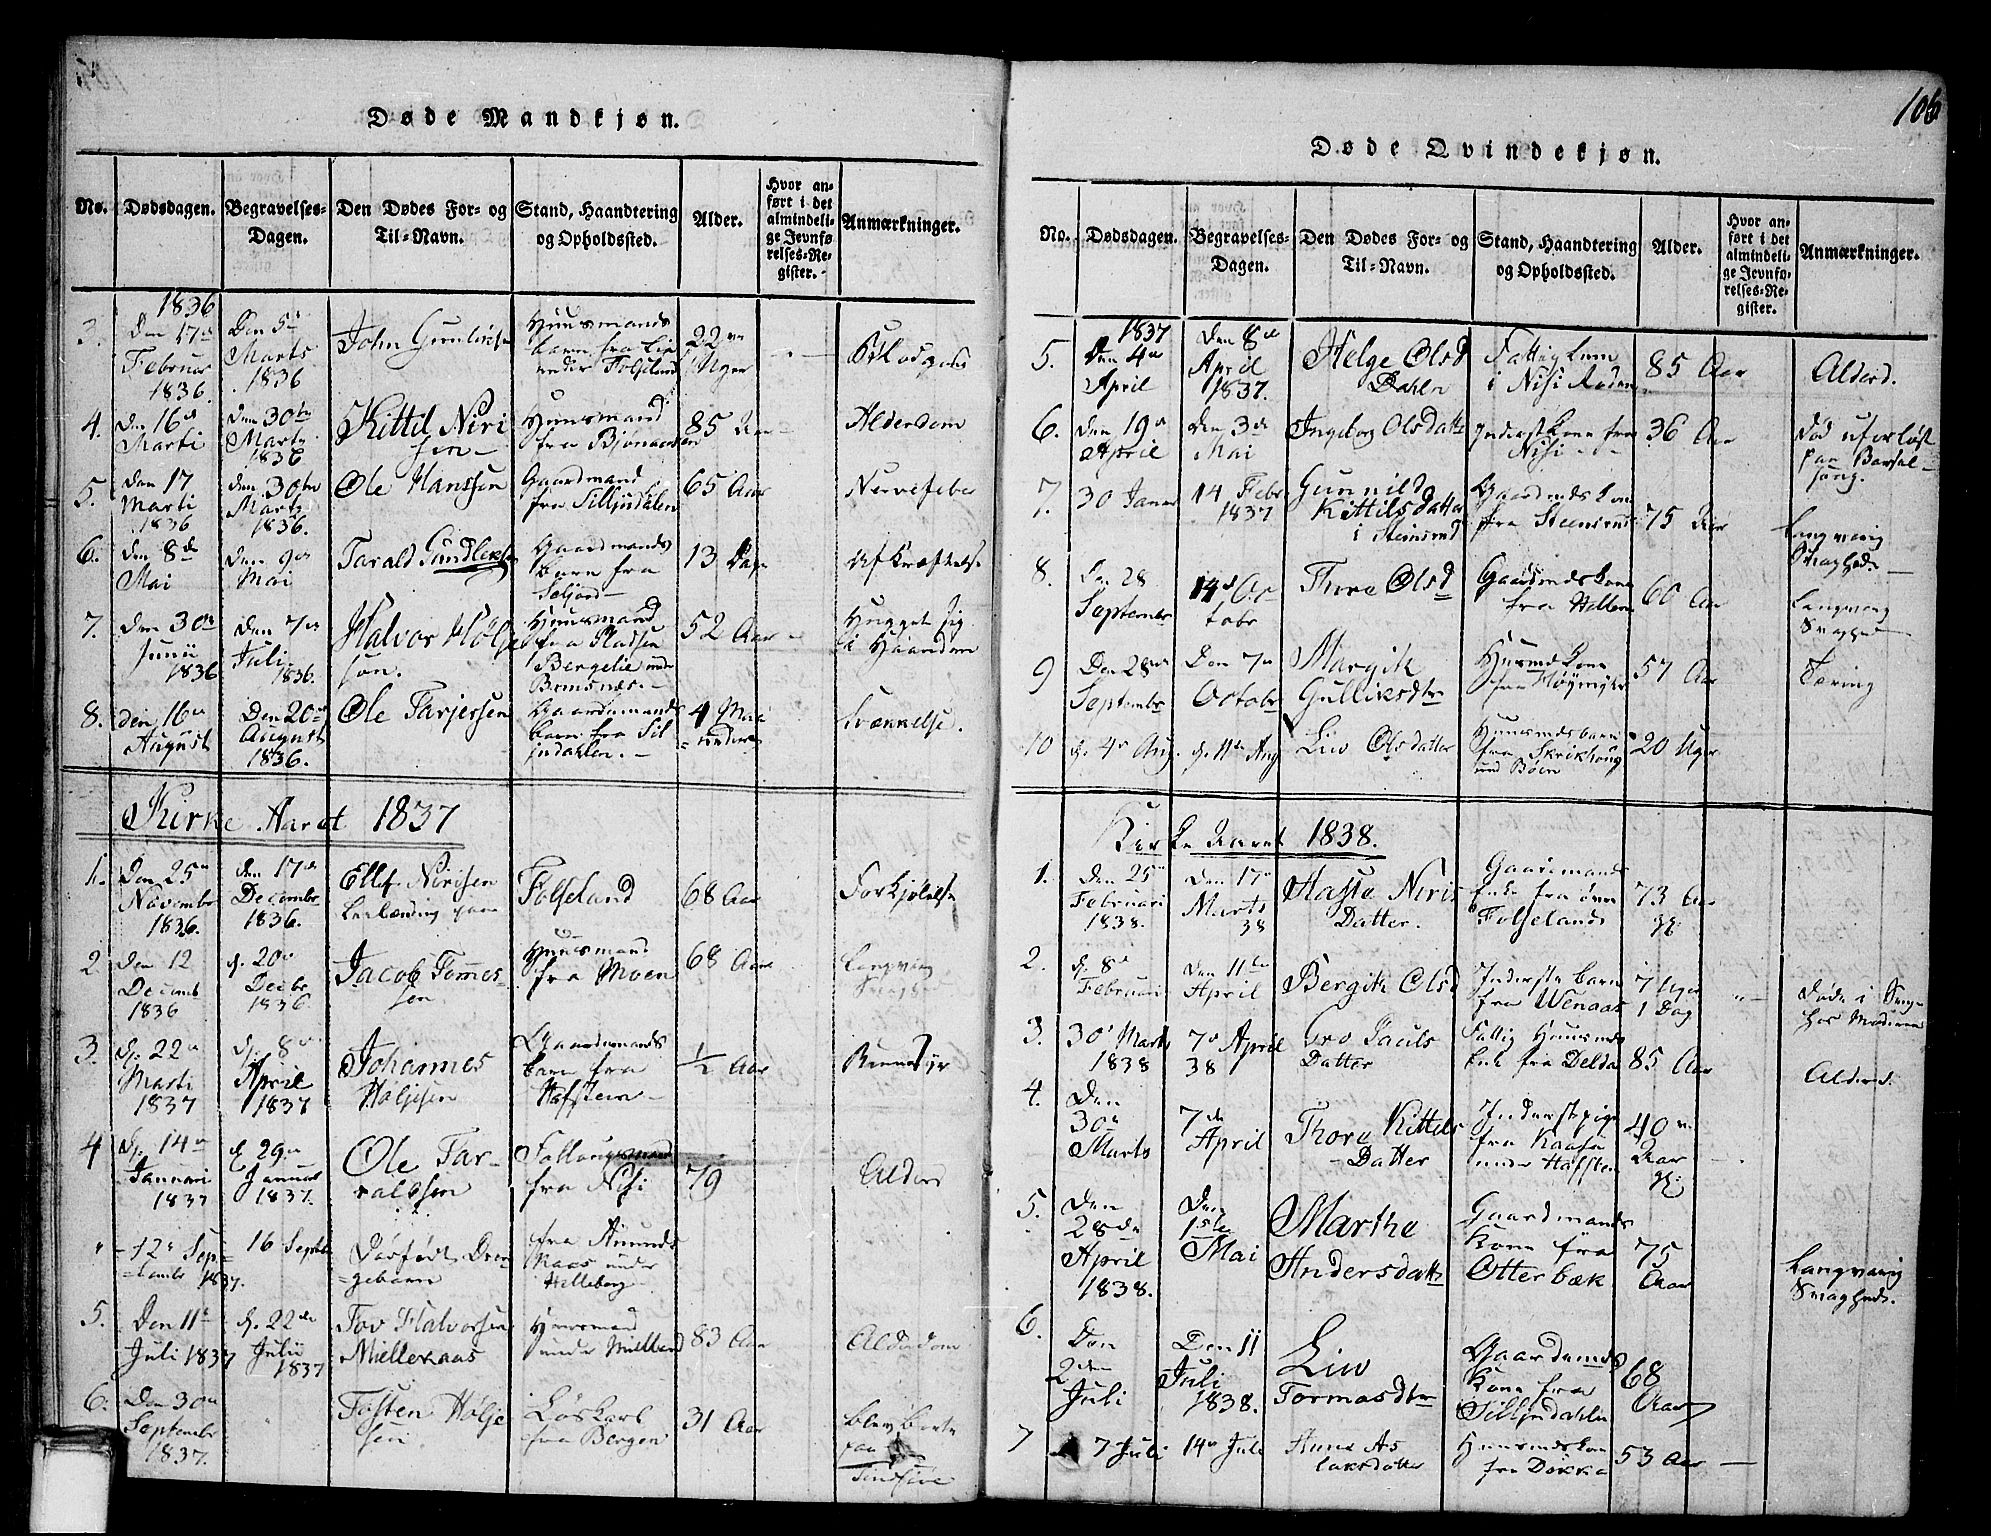 Døde Mandkjøn.
No. Dødsdagen. Begravelses-Dagen. Den Dødes For- og Til-Navn. Stand, Haandtering og Opholdssted. Alder. Hvor anført i det almindelige Jevnførelses-Register. Anmærkninger.
1836
3. Den 17de Februar 1836. Den 5te Marts 1836 John Gunliks Huusmands barn fra under Folseland 22 Uger
4. Den 16de Marti Den 30te Marts 1836 Kittel Nirisen Huusmand fra Bjønaas 85 Alderdom
5. den 17 Marti 1836 den 30te Marts 1836. Ole Hanssen Gaardmand fra Silljudalen 65 Aar Nervefeber
6. den 8de Mai den 9de Mai Tarald Gundleks Gaardmands barn fra Seljord 13 Dage Afkræftelse
7. Den 30te Junii 1836 den 7de Juli 1836. Halvor Høljesøn. Huusmand fra Pladsen Bergelie under Bømsnæs. 52 Aar Hugget sig i Haanden
8. den 16de August Den 20de August 1836. Ole Tarjersen Gaardmands barn fra Siljudahlen. 4 Maaneder Svækkelse.
Kirke Aaret 1837
1. Den 25de Novembr 1836. den 17de Decembr 1836. Ellef Nirisen Folseland 68 Aar Forkjølelse
2 Den 12 Decemb 1836 d. 20de Decbr 1836. Jacob Tommessen Huusmand fra Moen 68 Aar Langvarig Svaghed
3. D. 22de Marti 1837 D. 8de April 1837 Johannes Høljesen Gaardmands barn fra Hafsten 1/2 Aar
4 D. 14de Januari 1837 d 29de Januar 1837. Ole Taraldsen fra Nisi 79 Alderd
" 12te September 1837. 16 Septbr Dødfødt Drengebarn fra Aamunds Kaas under Helleberg
5. Den 11te Juli 1837 d. 22de Julii 1837 Tov Halvorsen Miellekaas Huusmand under Mielland 83 Aar Alderdom
6. Den 30te September 1837. Tosten Høljesen Løskarl fra Bergen 31 Aar blev borte paa Tindsiøe
106
Døde Qvindekjøn.
No. Dødsdagen. Begravelses-Dagen. Den Dødes For- og Til-Navn. Stand, Haandtering og Opholdssted. Alder. Hvor anført i det almindelige Jevnførelses-Register. Anmærkninger.
1837
5. Den 4de April Den 8de April 1837. Helge Olsd Dahlen Fattiglem i Nisi Roden 85 Aar Alderd.
6. Den 19de April Den 3de Mai Ingebog Olsdattr Inderstkone fra Nisi 36 Aar Død uforløst paa Barselseng.
7. 30 Januar 14 Febr 1837 Gunnild Kittilsdatter i Steinsrud Gaardmdskone fra Steensrud 75 Aar Langvarig Svaghed
8. Den 28 September 14de October Thore Olsd Gaardmdskone fra Hellem 60 Aar Langvarig Svaghed
9 Den 28de Septembr Den 7de Octobr Margith Gulliksdtr Husmdskone fra Høymyr 57 Aar Tæring
10 d. 4de Aug. d. 11te Aug Liv Olsdatter Huusmdsbarn fra Skrikhoug und Bøen 20 Uger
Kirke Aaret 1838.
1. Den 25de Februari 1838. Den 17de Marts 38 Haste Niris Datter. Gaardmands Enke fra øvre Folseland 73 Aar gl.
2. d. 8de Februari Den 11te April Bergith Olsd Inderste barn fra Wenaas 7 Uger 1 Dag Døde i Seng hos Moderen
3. 30te Marts 1838 7de April 38 Gro Pauls Datter Fattig Huusmds Enke fra Delda 85 Aar Alderd.
4. Den 30te Marts 7de April Thore Kittels Datter Inderstpige fra Kaasen under Hafsten 40 Aar gl:
5. Den 28de April 1838. Den 1ste Mai Marthe Andersdattr Gaardmands Kone fra Otterbæk 75 Aar Langvarig Svaghed.
6. Den 2den Juli Den 11 Juli 1838. Liv Tormosdtr Gaardmds Kone fra Silljudahlen 68 Aar
7 7 Juli 14de Juli Anne Aslaksdatter Huusmdskone fra Dokka 53 Aar